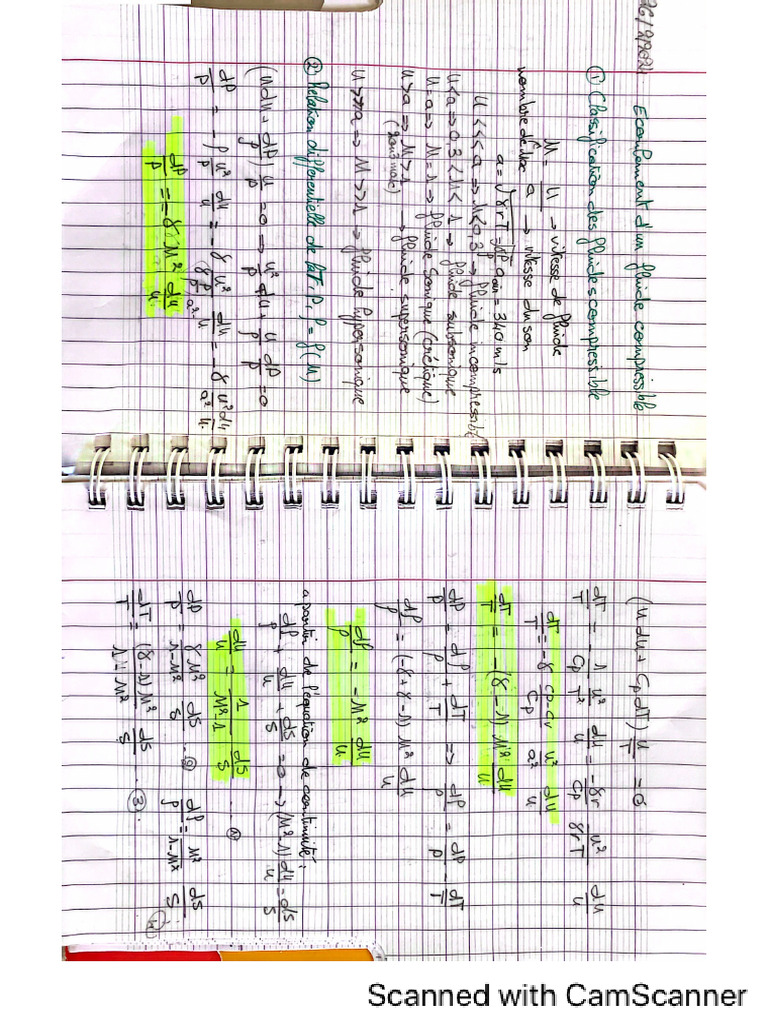 26/2/2024
Ecoulement d'un fluide compressible
① Classification des fluides compressible
M = u/a → vitesse de fluide
nombre de Mac → vitesse du son
a = √γrT a air = 340 m/s
u <<< a ⇒ M<0,3 → fluide incompressible
u<a ⇒ 0,3<M<1 → fluide subsonique
u=a ⇒ M=1 → fluide sonique (critique)
u>a ⇒ M>1 → fluide supersonique
u>>a ⇒ M>>1 → fluide hypersonique
② Relation differentielle de T, P, ρ = f(M)
(u du + dP/ρ) u/u = 0 ⇒ u²/u du + dP/ρ = 0
dP/P = -ρ/P u² du/u = -γ u²/(γP/ρ) du/u = -γ u²/a² du/u
dP/P = -γ M² du/u
(u du + Cp dT) u/T = 0
dT/T = -1/Cp u²/T du/u = -γr/Cp u²/γrT du/u
dT/T = -γ (Cp-Cv)/Cp u²/a² du/u
dT/T = -(γ-1) M² du/u
dP/P = dρ/ρ + dT/T ⇒ dρ/ρ = dP/P - dT/T
dρ/ρ = (-γ+γ-1) M² du/u
dρ/ρ = -M² du/u
a partir de l'équation de continuité;
dρ/ρ + du/u + dS/S = 0 → (M²-1) du/u = dS/S
du/u = 1/(M²-1) dS/S ... ①
dP/P = γM²/(1-M²) dS/S ... ② dρ/ρ = M²/(1-M²) dS/S ④
dT/T = (γ-1)M²/(1-M²) dS/S ... ③
Scanned with CamScanner